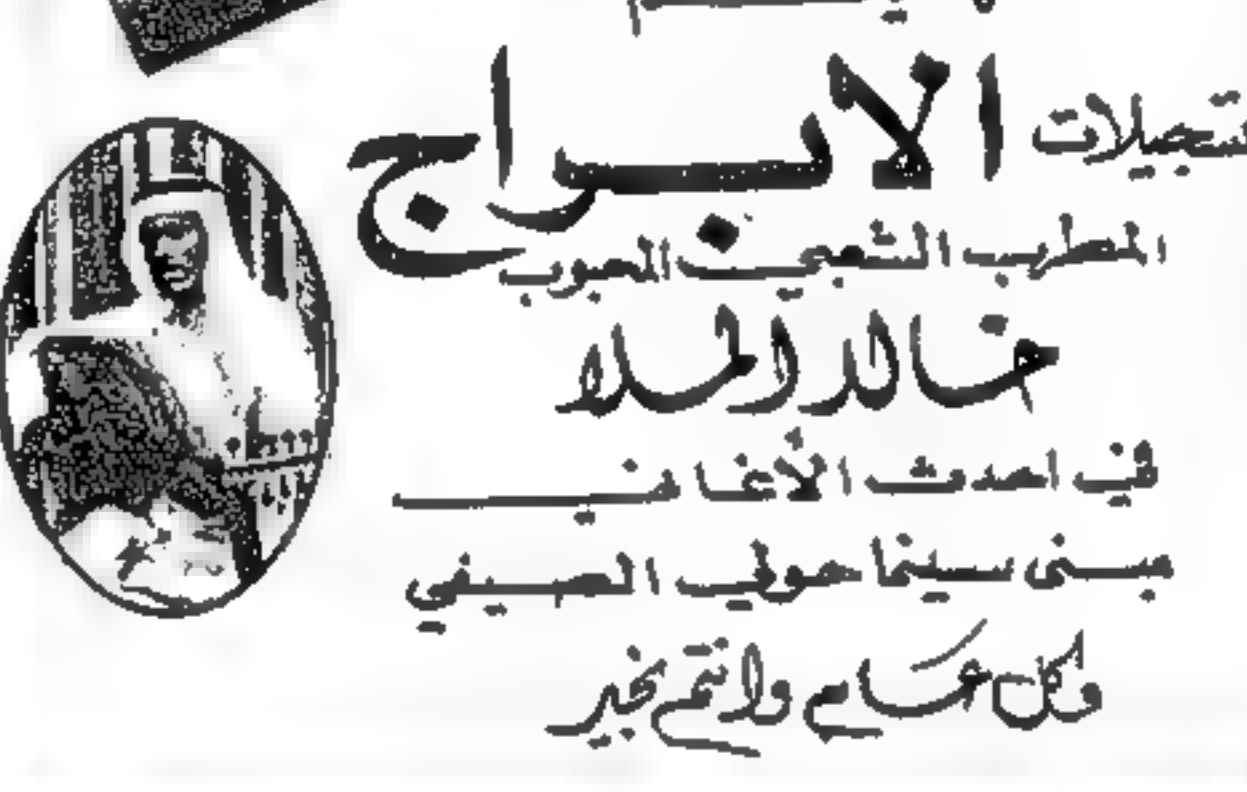 تسجيلات الابراج
المطرب الشعبي المحبوب
خالد الملا
في احدث الأغاني
مبنى سينما حولي الصيفي
وكل عام وانتم بخير